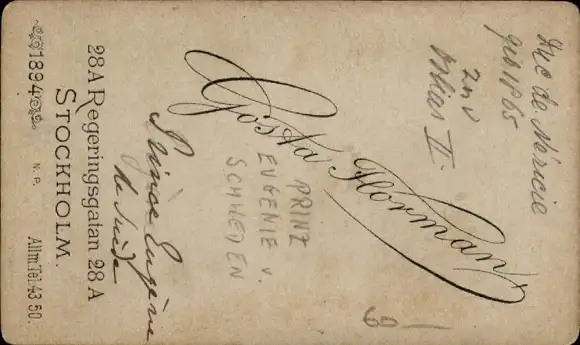 Duc de Néricie
geb 1865
Oskar II.
Gösta Florman
PRINZ
EUGENIE v.
SCHWEDEN
Prince Eugène
de Suède
28A Regeringsgatan 28A
STOCKHOLM.
1894
N. P.
Allm. Tel. 43 50.